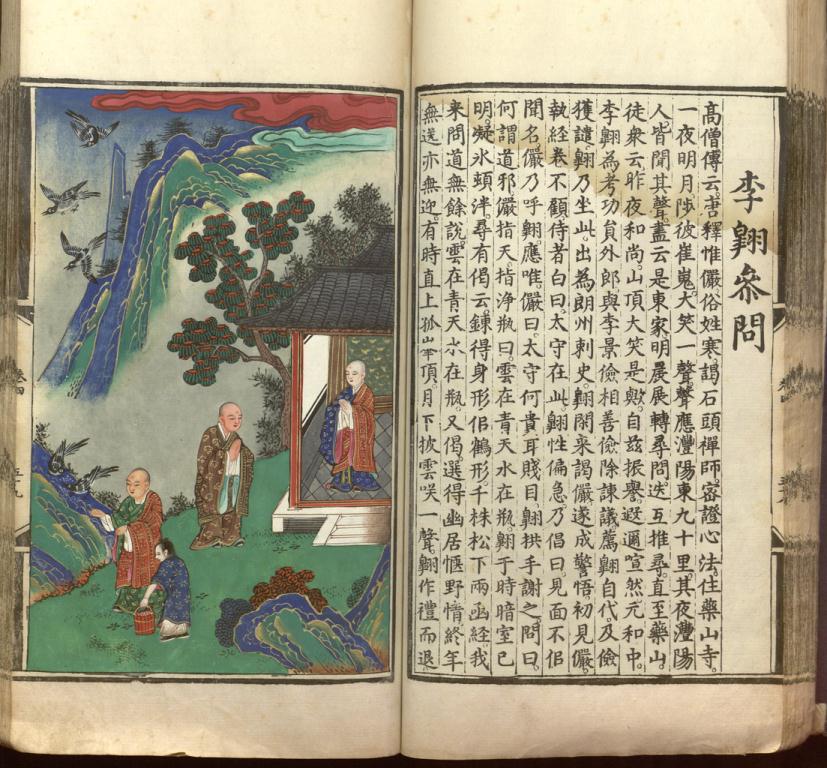 李翺參問
高僧傳云唐釋惟儼俗姓寒謁石頭禪師密證心法住藥山寺。
一夜明月陟彼崔嵬。大笑一聲。聲應灃陽東九十里。其夜灃陽
人皆聞其聲。盡云是東家明晨展轉尋問迭互推尋。直至藥山。
徒衆云昨夜和尚山頂大笑是歟。自茲振譽遐邇喧然元和中。
李翺為考功負外郎與李景儉相善儉除諫議薦翺自代及儉
獲譴翺乃坐此。出為朗州刺史。翺閑來謁儼遂成警悟初見儼。
執經卷不顧侍者白曰。太守在此。翺性偏急乃倡曰。見面不佀
聞名儼乃呼翺應唯。儼曰。太守何貴耳賤目。翺拱手謝之。問曰。
何謂道邪儼指天指淨瓶曰。雲在青天水在瓶。翺于時暗室已
明。凝氷頓泮。尋有偈云錬得身形佀鶴形。千株松下兩函經。我
來問道無餘說。雲在青天水在瓶。又偈選得幽居愜野情終年
無送亦無迎。有時直上孤山峯頂。月下披雲咲一聲。翺作禮而退。